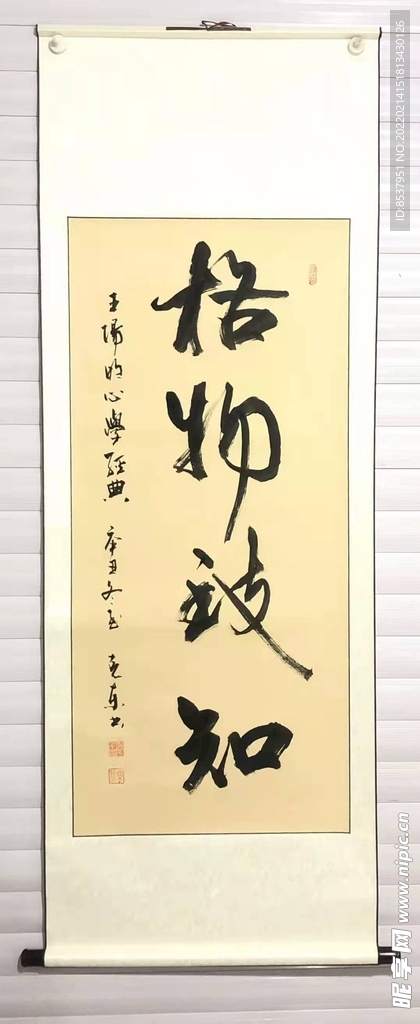 格物致知
王陽明心學經典 辛丑冬至 克東书
ID:8537951 NO:20220214151813430126
昵享网 www.nipic.cn